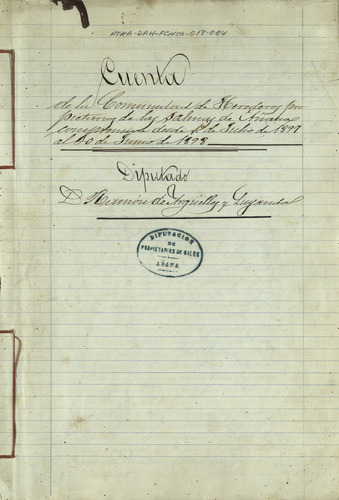 ATHA-DAH-FCNTA-017-004
Cuenta
de la Comunidad de Herederos pro
pietarios de las salinas de Añana
comprensiva desde 1º de Julio de 1897
al 30 de Junio de 1898
Diputado
D. Ramón de y
DIPUTACION
DE
PROPIETARIOS DE SALES
AÑANA